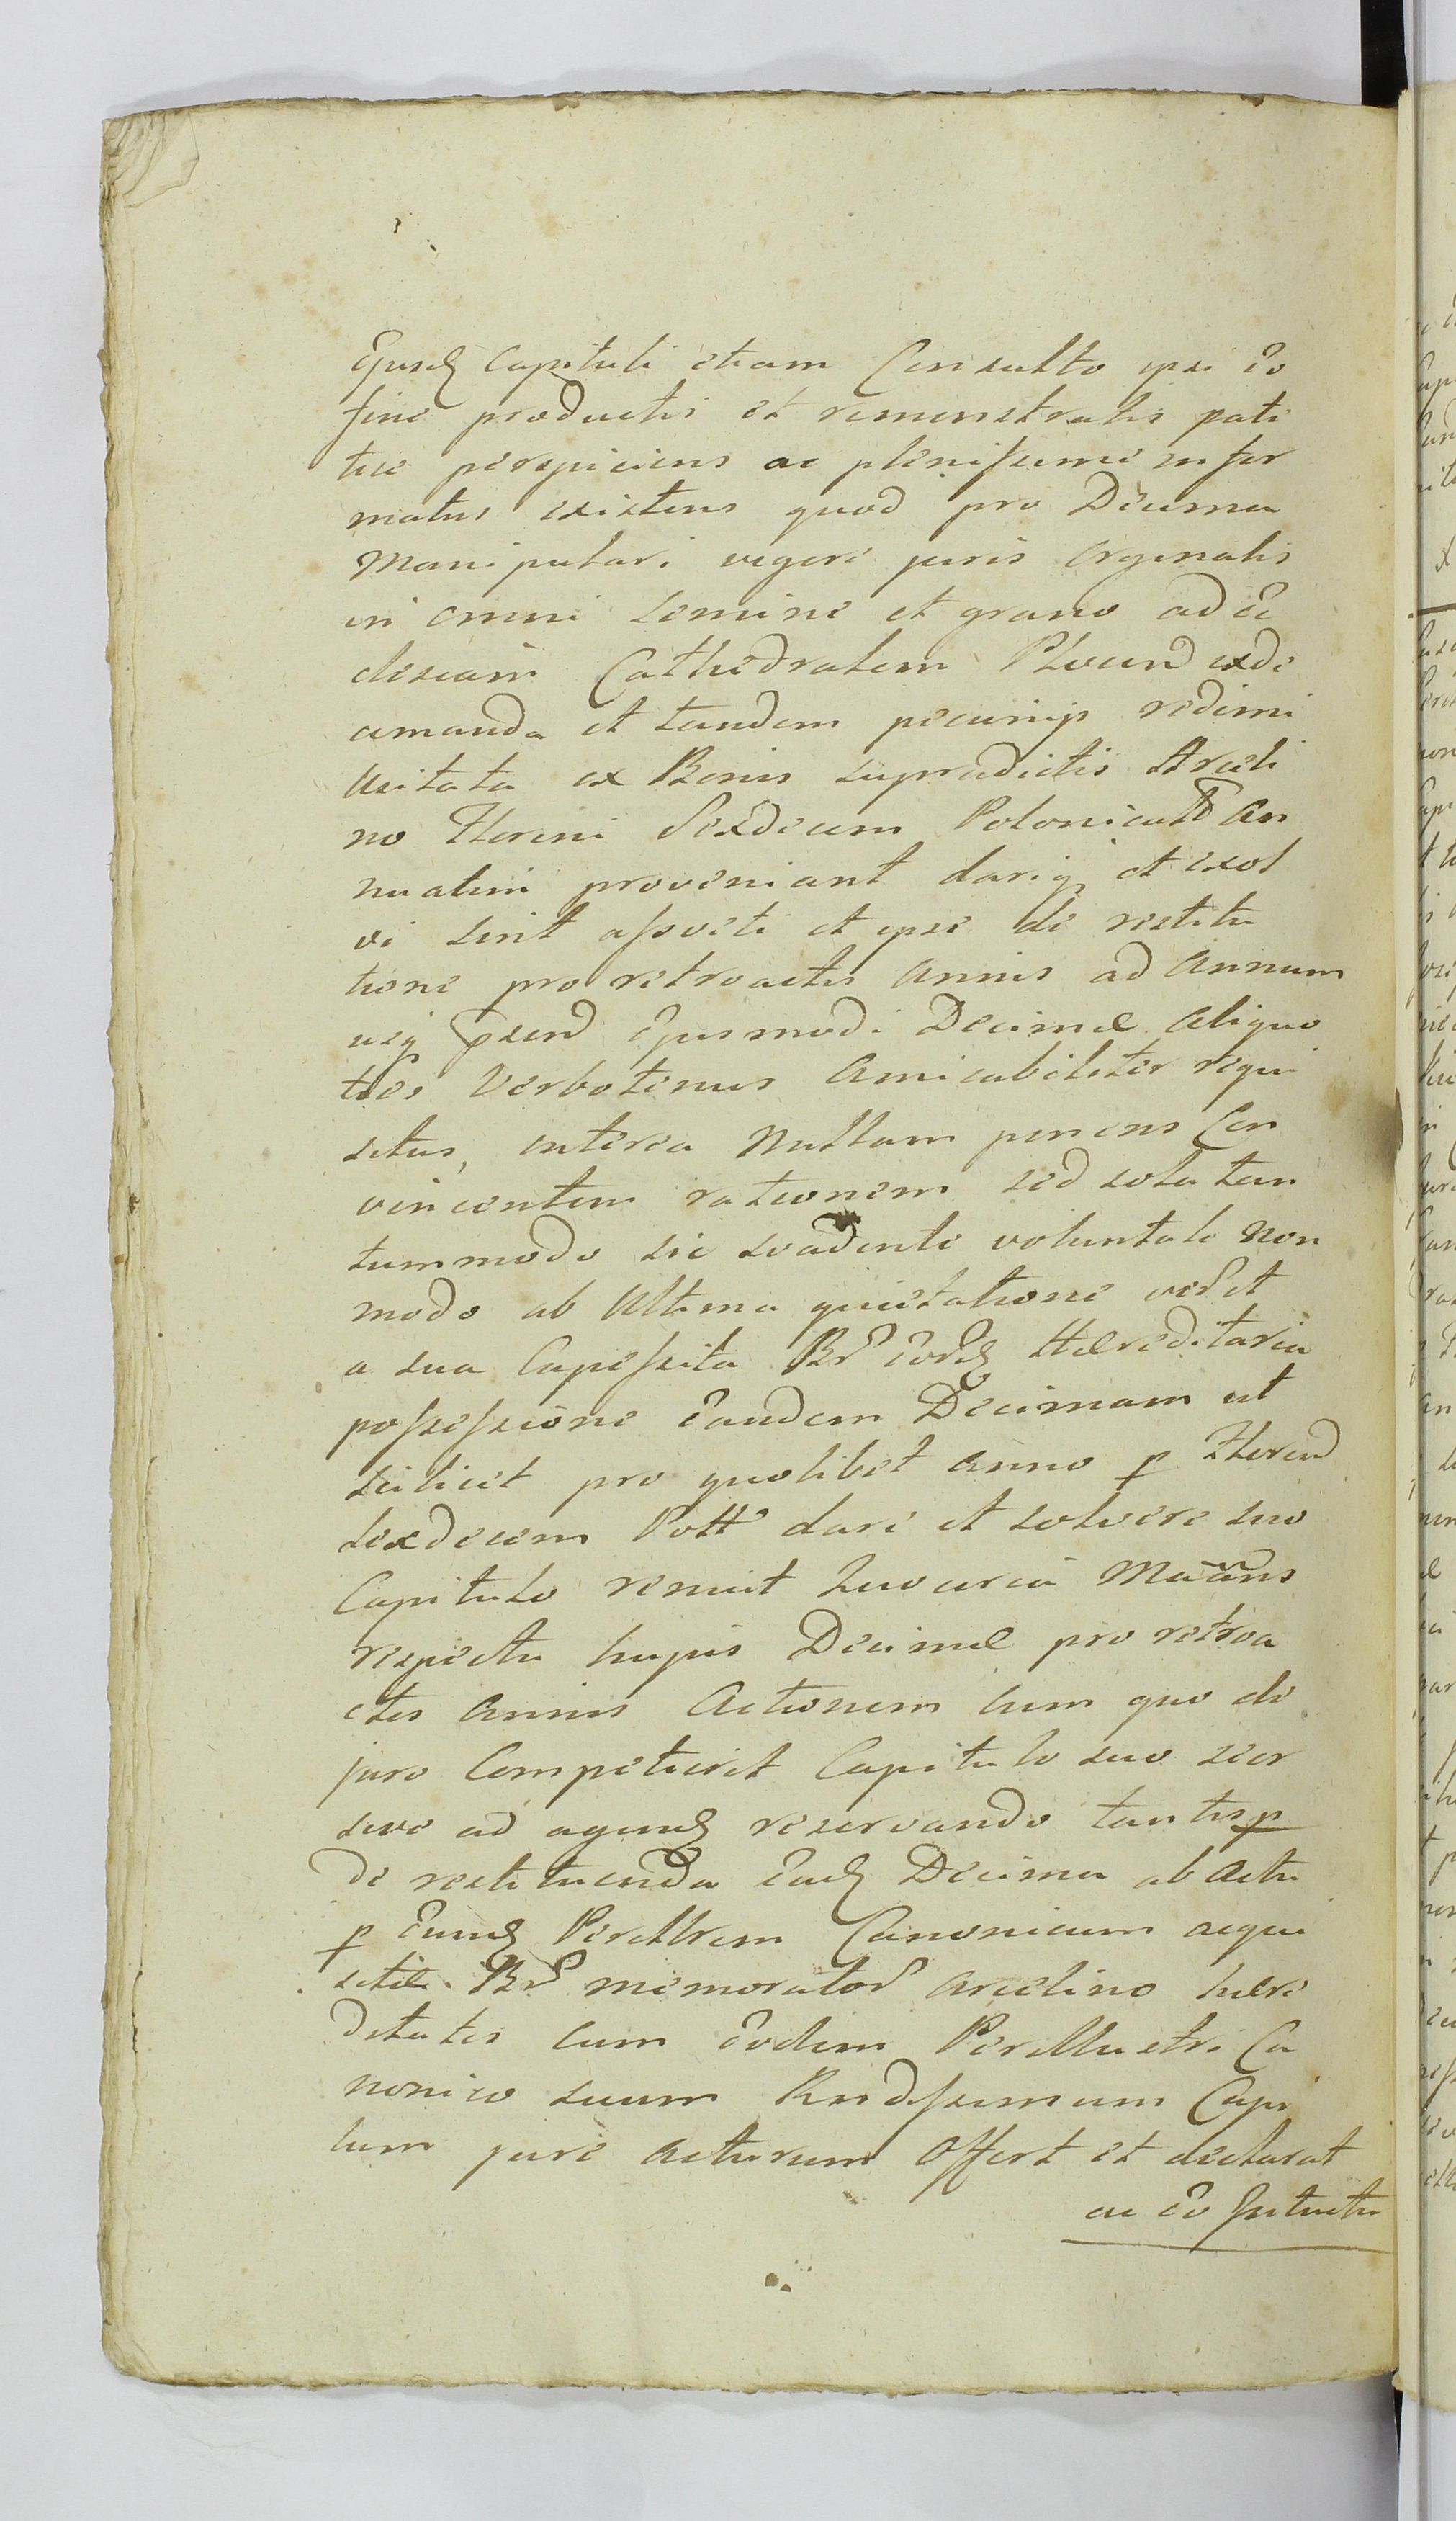 Ejusd Capituli etiam Consulto ipsi eo
fine productis et remonstratis pate
tice perspiciens ac plenissime infor
matus existens quod pro Decima
Manipulari vigore juris orginalis
in omni semine et grano ad Ec
clesiam Cathedralem Plocend exde
cimanda et tandem pecuniis redimi
usitata ex Bonis supradictis Arceli
no floreni Sexdecim Polonical an
nuatim proveniant dariq et exol
vi sint assveti et ipse de restitu
tione pro retroactis annis ad annum
usq psend Ejusmodi Decimæ aliquo
ties Verbotenus Amicabiliter requi
situs, interea Nullam ponens Con
vincentem rationem sed sola tan
tummodo sic svadente voluntate non
modo ab Ultima quietatione verst
a sua Capessita Br eord Hæreditaria
possessione eandem Decimam ut
scilicet pro quolibet anno p floren
sexdecem Poll dare et solvere suo
Capitulo renuit
respectu hujus Decimæ pro retroa
ctis annis Actionem cum quo de
jure Competierit Capitulo suo seor
sive ad agend reservando tantisp
de restituenda ead Decima ab actu
p eumd Perillrem Canonicum acqui
sitæ Br memorator Arcelino hære
ditatis cum eodem Perillustri Ca
nonico suum Rndssimum Capi
lum jure acturum offert et declarat
ac eo